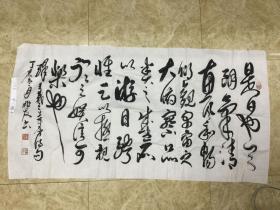 是日也天
朗氣清
惠風和暢
仰觀宇宙之
大俯察品
類之盛所
以游目騁
懷足以極視
聽之娛信可
樂也
王羲之
丁亥